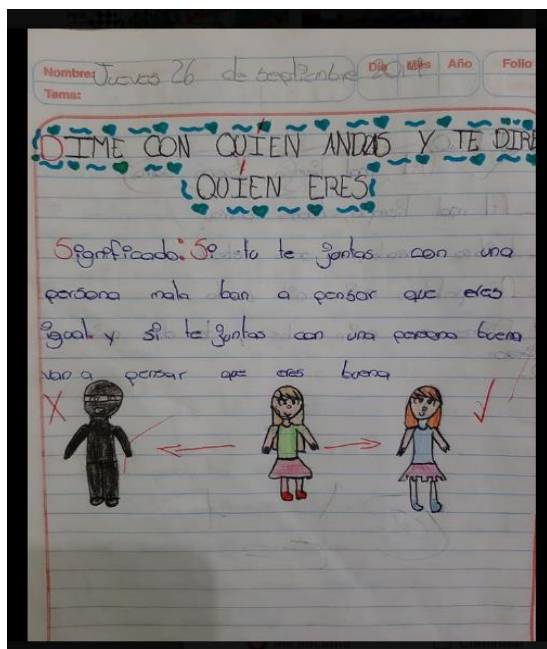 Nombre: Jueves 26 de septiembre 2019 Día Mes Año Folio
Tema:
DIME CON QUÍEN ANDAS Y TE DIRE
QUÍEN ERES
Significado: Si tu te juntas con una
persona mala ban a pensar que eres
igual y si te juntas con una persona buena
van a pensar que eres buena